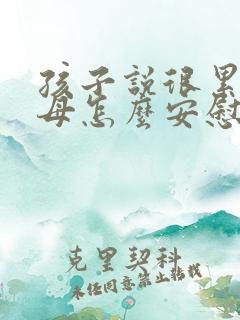 孩子説很累
母怎麼安慰
克里契科
未经同意禁止转载